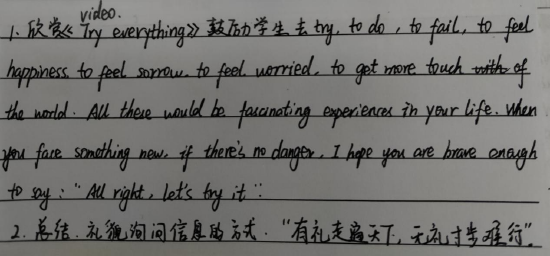 video.
1. 欣赏《Try everything》鼓励学生去try, to do, to fail, to feel
happiness, to feel sorrow, to feel worried, to get more touch with of
the world. All these would be fascinating experiences in your life. When
you face something new, if there's no danger, I hope you are brave enough
to say: "All right, let's try it".
2. 总结. 礼貌询问信息的方式. "有礼走遍天下, 无礼寸步难行".